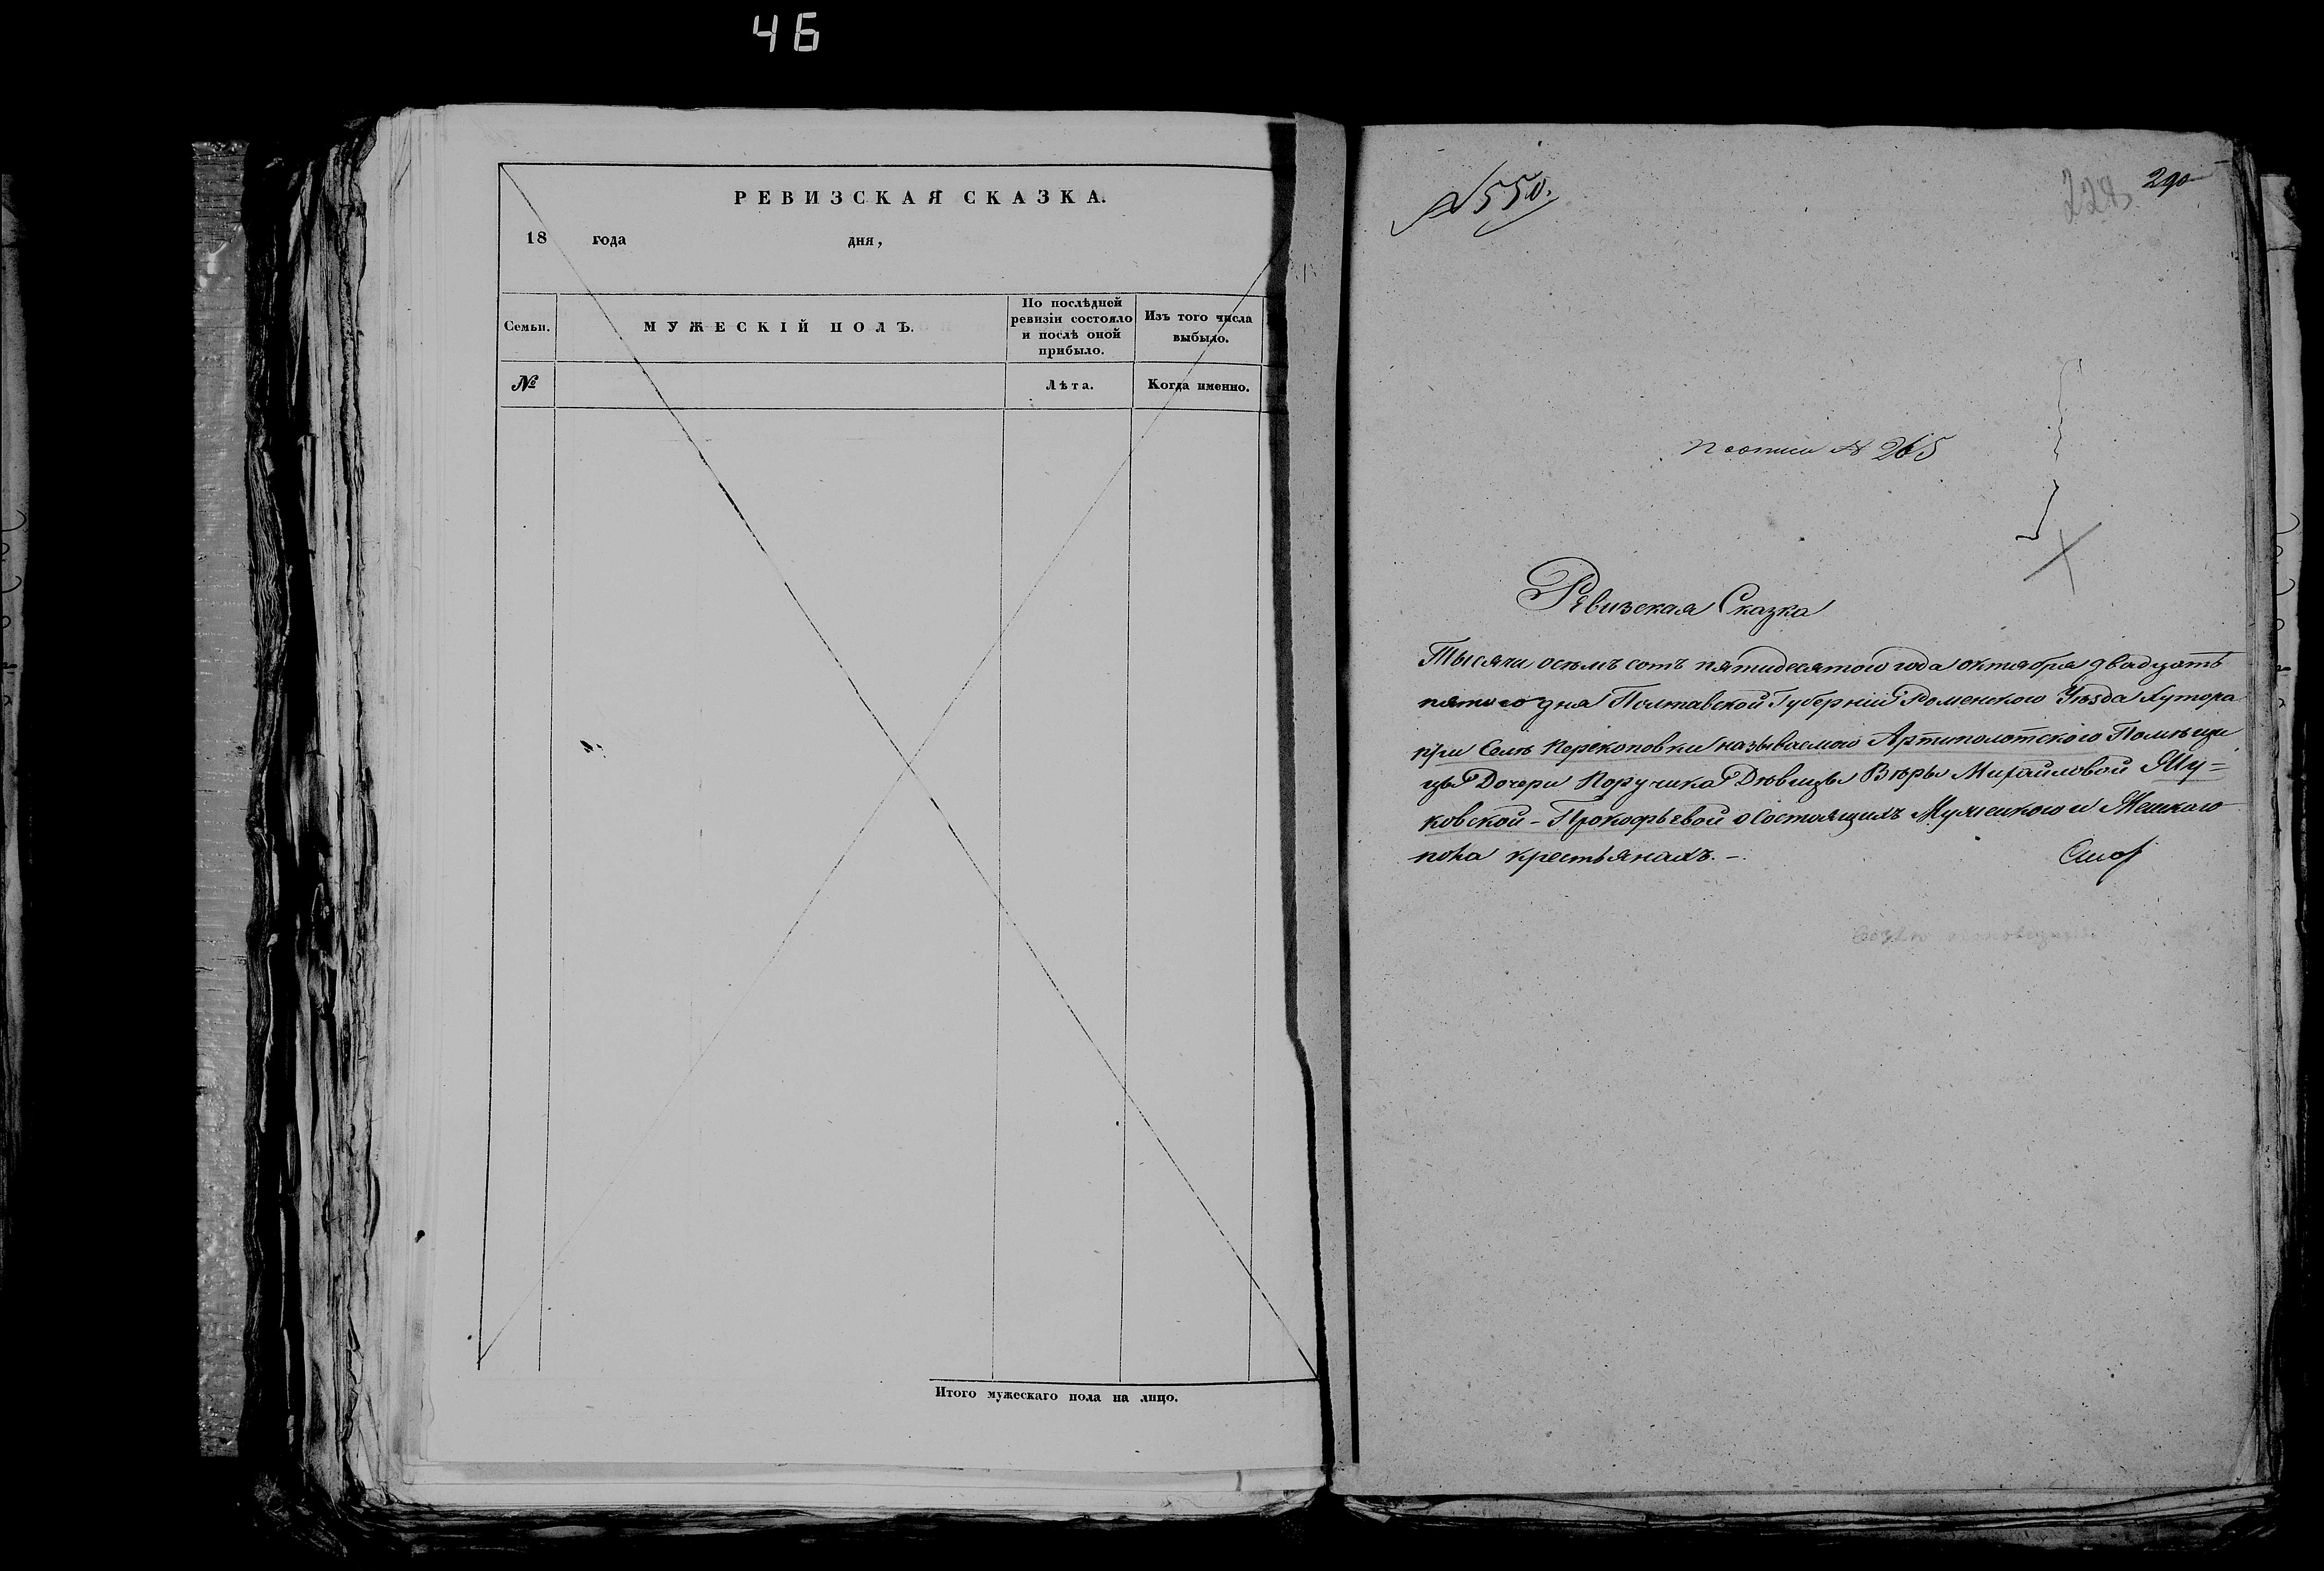 46
РЕВИЗСКАЯ СКАЗКА.
18 года дня,
Семьи.
МУЖЕСКІЙ ПОЛЪ.
По послѣдней
ревизіи состояло
и послѣ оной
прибыло.
Изъ того числа
выбыло.
№
Лѣта.
Когда именно.
Итого мужескаго пола на лицо.
№ 550.
228
290
По описи № 265
Ревизская Сказка
Тысяча осемъ сотъ пятидесятого года октября двадцать
пятого дня Полтавской Губерніи Роменского Уѣзда Хутора
при Селѣ Перекоповки называемого Артиполотского Помѣщи
цы Дочери Поручика Дѣвицы Вѣры Михайловой Жу=
ковской - Прокофьевой о Состоящихъ Мужеского и Женского
пола крестьянахъ. -